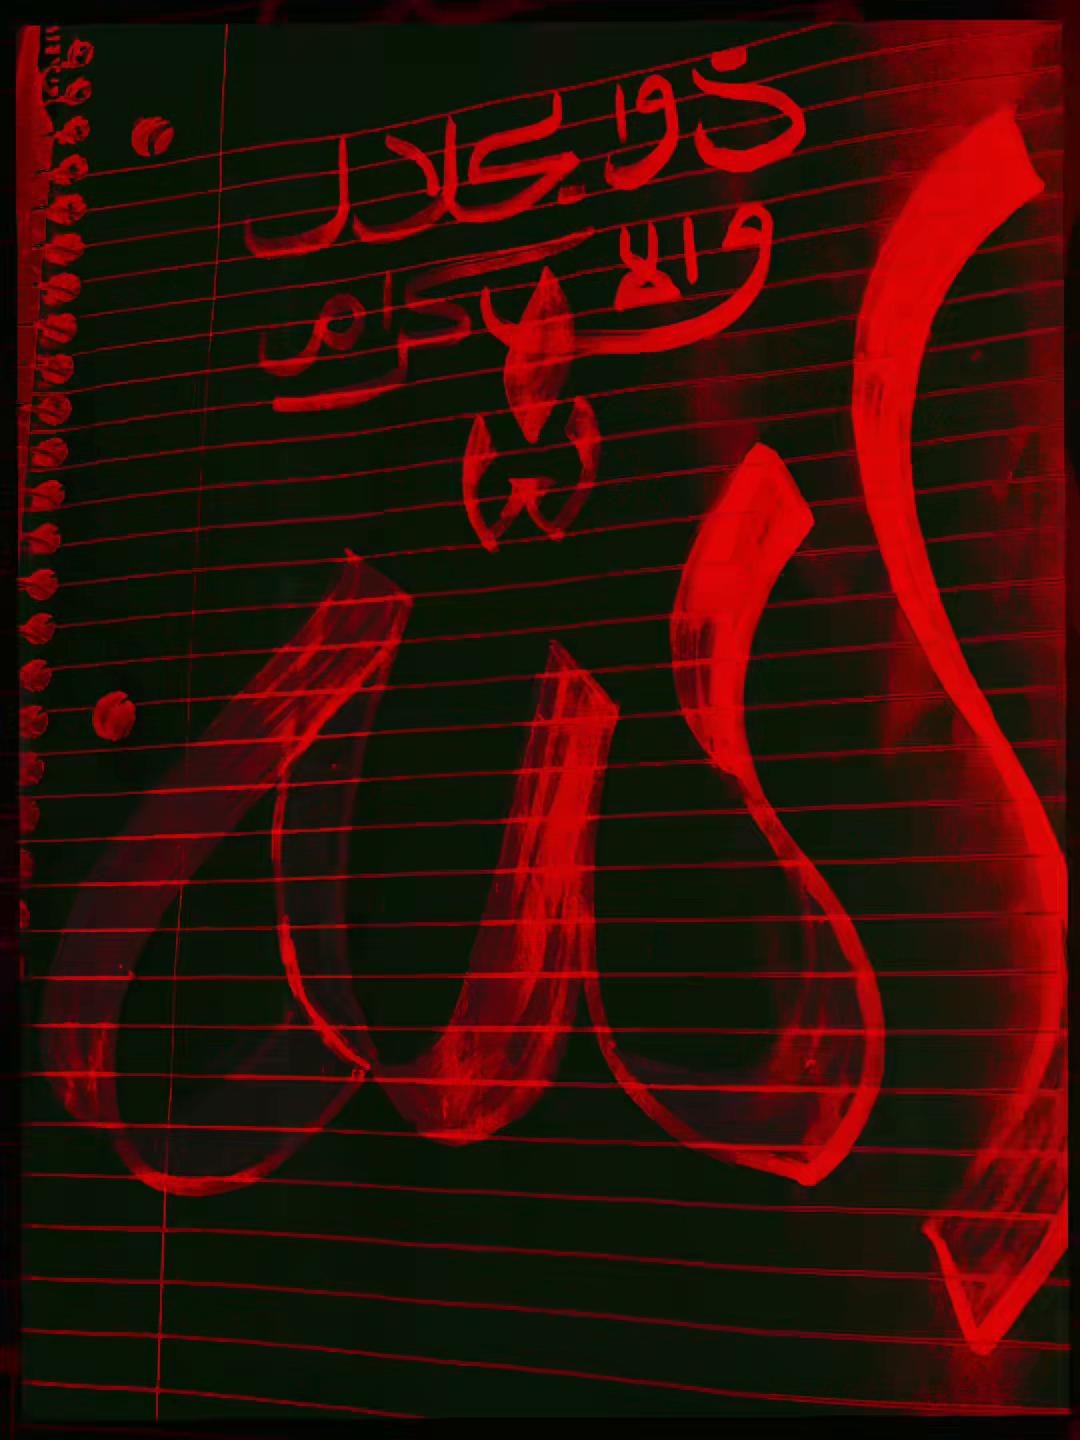 ذوالجلال
والاكرام
الله